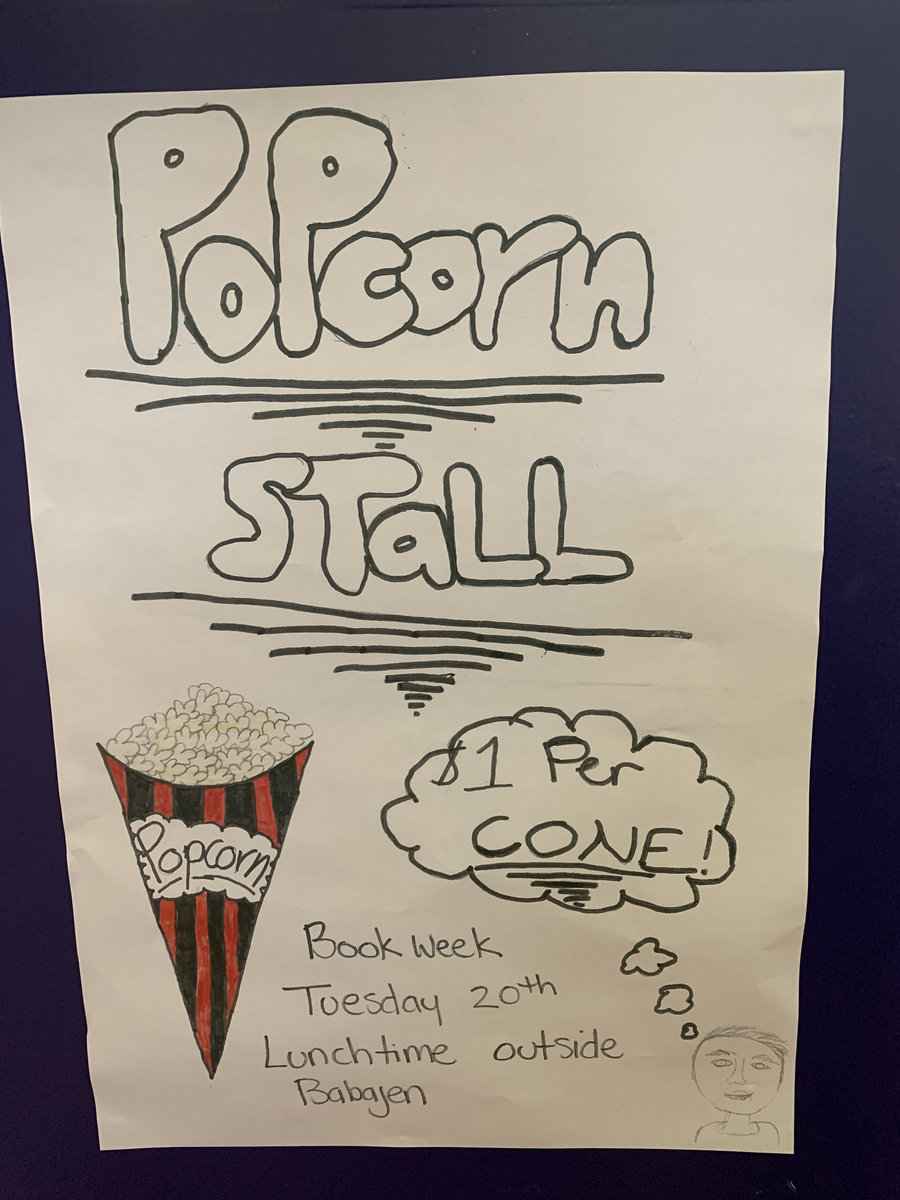 PoPcorn
STaLL
$1 Per
CONE!
Popcorn
Book Week
Tuesday 20th
Lunchtime outside
Babajen